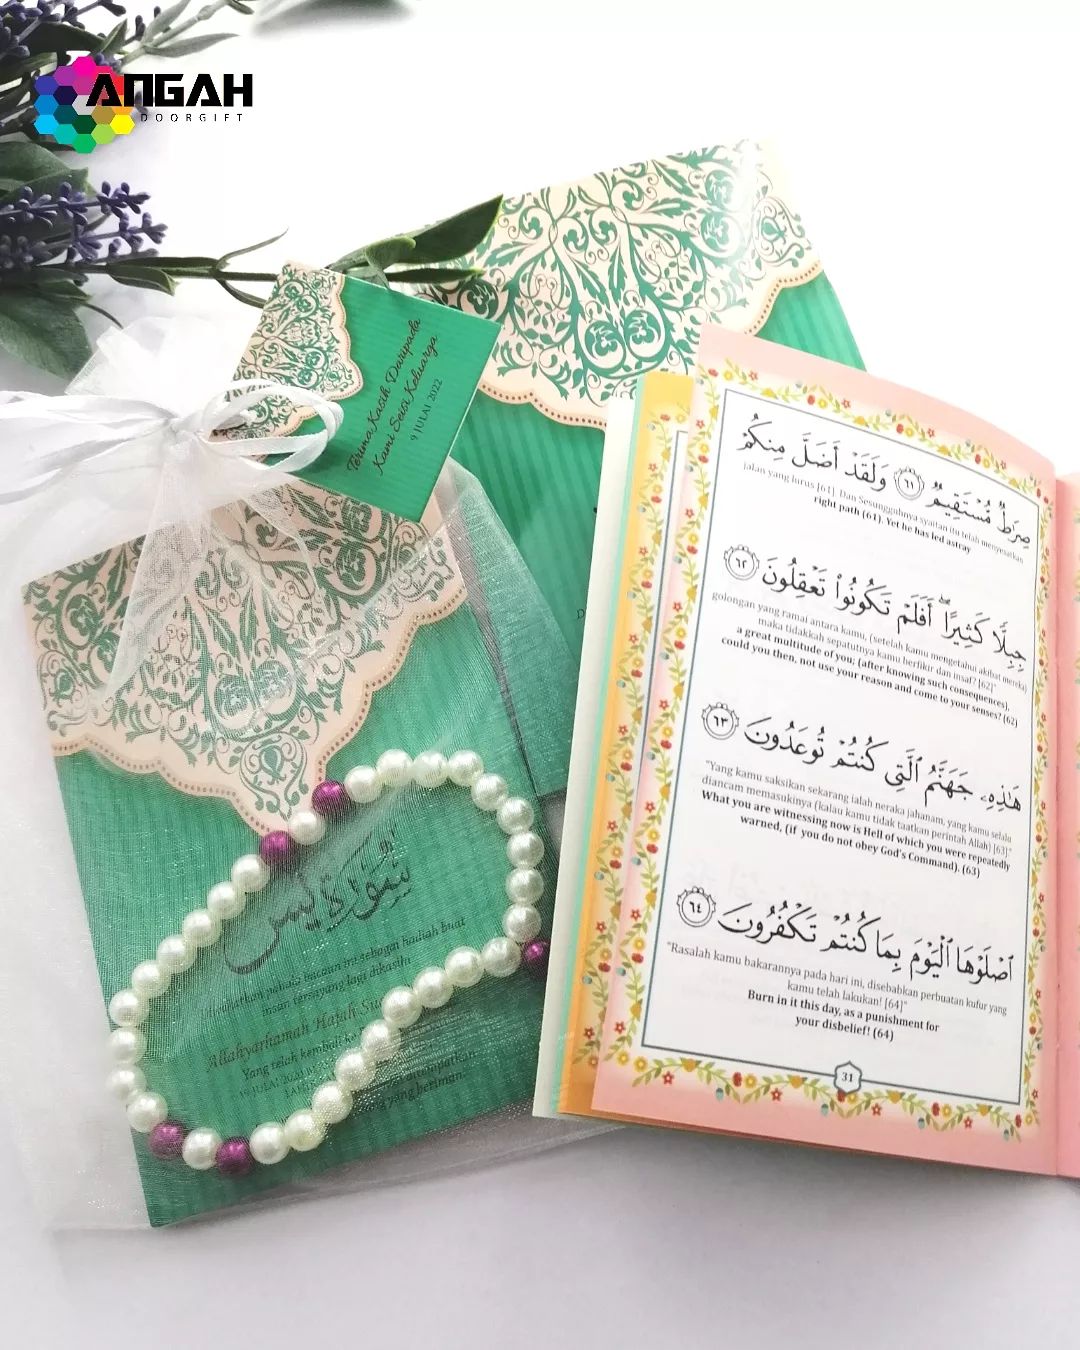 ANGAH
DOORGIFT
Terima Kasih Daripada
Kami Seisi Keluarga
9 JULAI 2022
سورة يس
insan tersayang lagi dikasihi
Allahyarhamah Hajah
Yang telah kembali ke
yang beriman.
صِرَٰطٌ مُّسْتَقِيمٌ ٦١ وَلَقَدْ أَضَلَّ مِنكُمْ
jalan yang lurus [61]. Dan Sesungguhnya syaitan itu telah menyesatkan
right path (61). Yet he has led astray
جِبِلًّا كَثِيرًا ۖ أَفَلَمْ تَكُونُوا۟ تَعْقِلُونَ ٦٢
golongan yang ramai antara kamu, (setelah kamu mengetahui akibat mereka)
maka tidakkah sepatutnya kamu berfikir dan insaf? [62]"
a great multitude of you; (after knowing such consequences),
could you then, not use your reason and come to your senses? (62)
هَٰذِهِۦ جَهَنَّمُ ٱلَّتِى كُنتُمْ تُوعَدُونَ ٦٣
"Yang kamu saksikan sekarang ialah neraka jahanam, yang kamu selalu
diancam memasukinya (kalau kamu tidak taatkan perintah Allah) [63];"
What you are witnessing now is Hell of which you were repeatedly
warned, (if you do not obey God's Command). (63)
ٱصْلَوْهَا ٱلْيَوْمَ بِمَا كُنتُمْ تَكْفُرُونَ ٦٤
"Rasalah kamu bakarannya pada hari ini, disebabkan perbuatan kufur yang
kamu telah lakukan! [64]"
Burn in it this day, as a punishment for
your disbelief! (64)
31